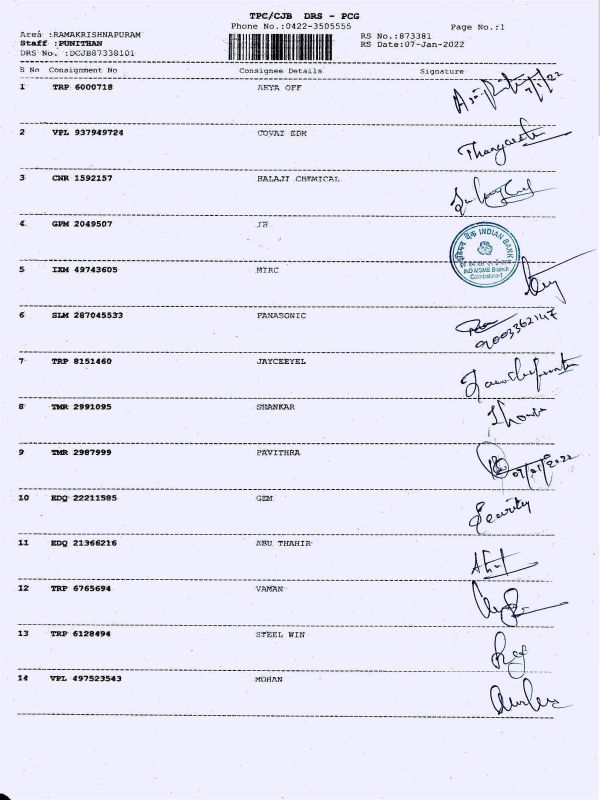 TPC/CJB DRS - PCG
Phone No.:0422-3505555 Page No.:1
Area :RAMAKRISHNAPURAM RS No.:873381
Staff :PUNITHAN RS Date:07-Jan-2022
DRS No. :DCJB87338101
S No Consignment No Consignee Details Signature
1 TRP 6000718 ARYA OFF
2 VPL 937949724 COVAI EDM
3 CNR 1592157 BALAJI CHEMICAL
4 GPM 2049507 IB
INDIAN BANK
IND MSME Branch
Coimbatore-1
5 IXM 49743605 MTRC
6 SLM 287045533 PANASONIC
9003362147
7 TRP 8151460 JAYCEEYEL
8 TMR 2991095 SHANKAR
9 TMR 2987999 PAVITHRA
07/01/2022
10 EDQ 22211585 GEM Security
11 EDQ 21366216 ABU THAHIR
12 TRP 6765694 VAMAN
13 TRP 6128494 STEEL WIN
14 VPL 497523543 MOHAN